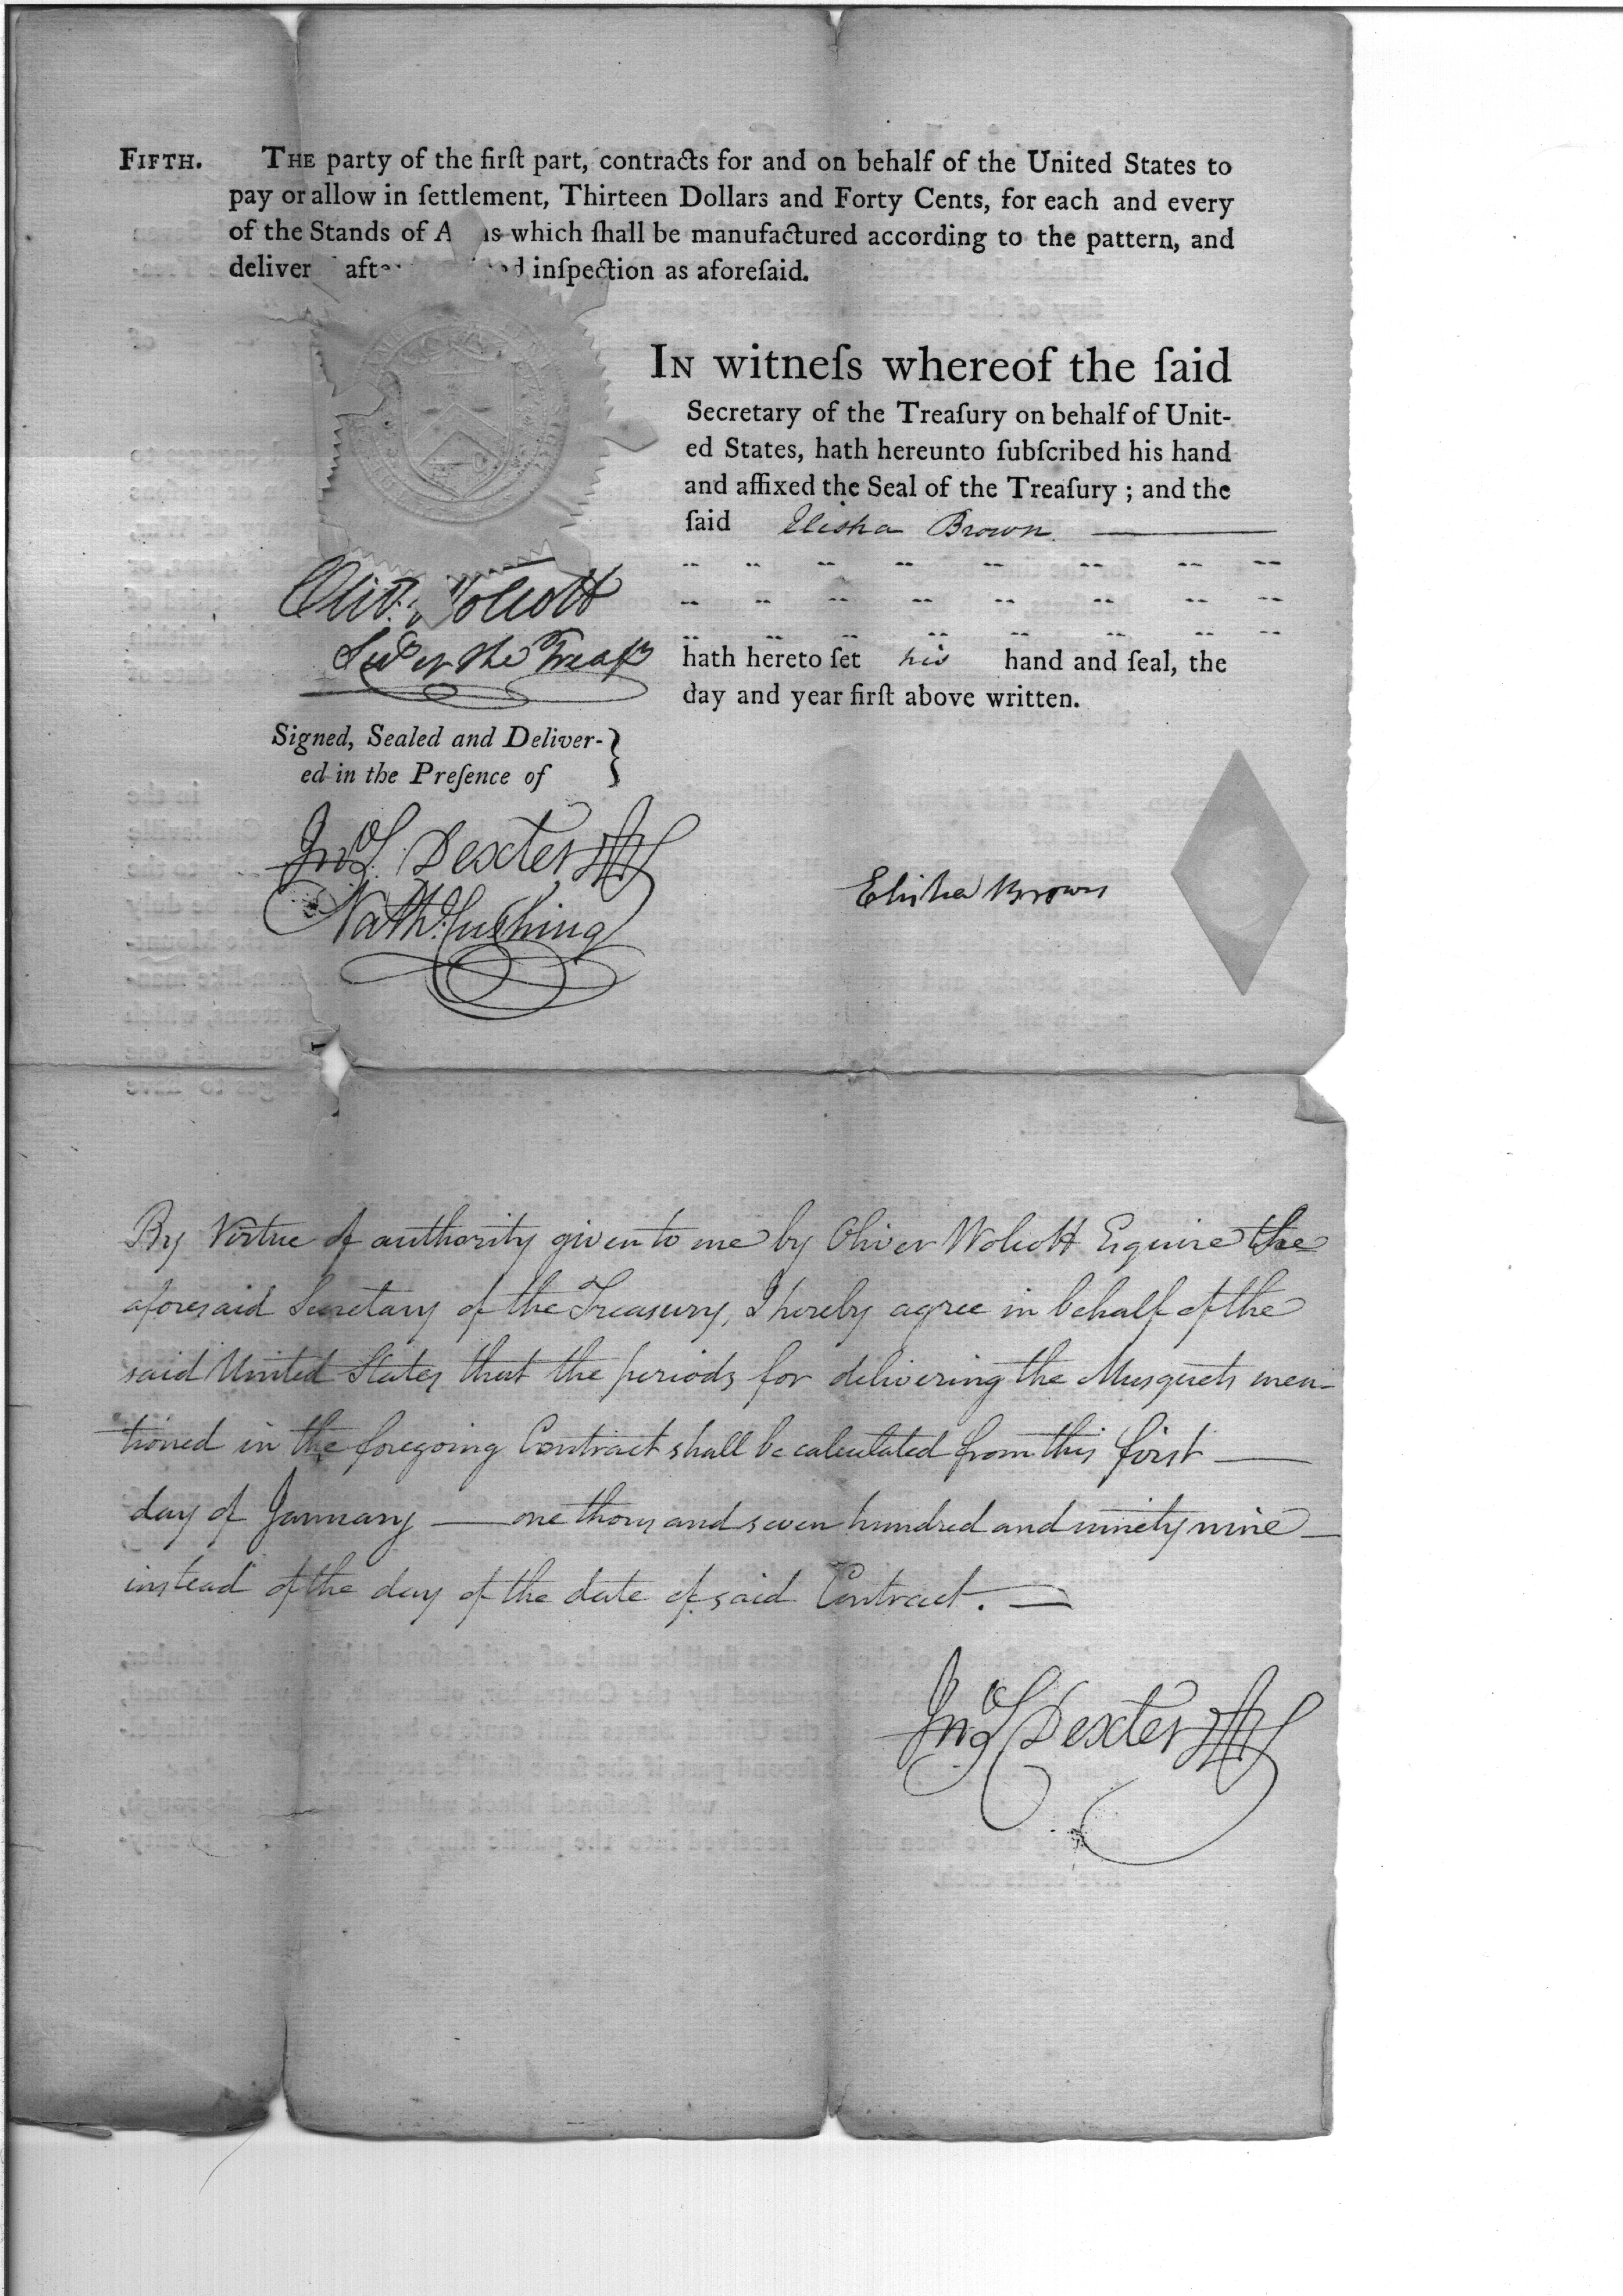 FIFTH. THE party of the firſt part, contracts for and on behalf of the United States to
pay or allow in ſettlement, Thirteen Dollars and Forty Cents, for each and every
of the Stands of A ms which ſhall be manufactured according to the pattern, and
deliver afte d inſpection as aforeſaid.
IN witneſs whereof the ſaid
Secretary of the Treaſury on behalf of Unit-
ed States, hath hereunto ſubſcribed his hand
and affixed the Seal of the Treaſury ; and the
ſaid Elisha Brown
hath hereto ſet his hand and ſeal, the
day and year firſt above written.
Oliv: Wolcott
Secy of the Treasy
Signed, Sealed and Deliver-
ed in the Preſence of
Jno S. Dexter
Nathl. Cushing
Elisha Brown
By Virtue of authority given to me by Oliver Wolcott Esquire the
aforesaid Secretary of the Treasury, I hereby agree in behalf of the
said United States that the periods for delivering the Musquets men-
tioned in the foregoing Contract shall be calculated from this first —
day of January — one thousand seven hundred and ninety nine —
instead of the day of the date of said Contract. —
Jno S Dexter